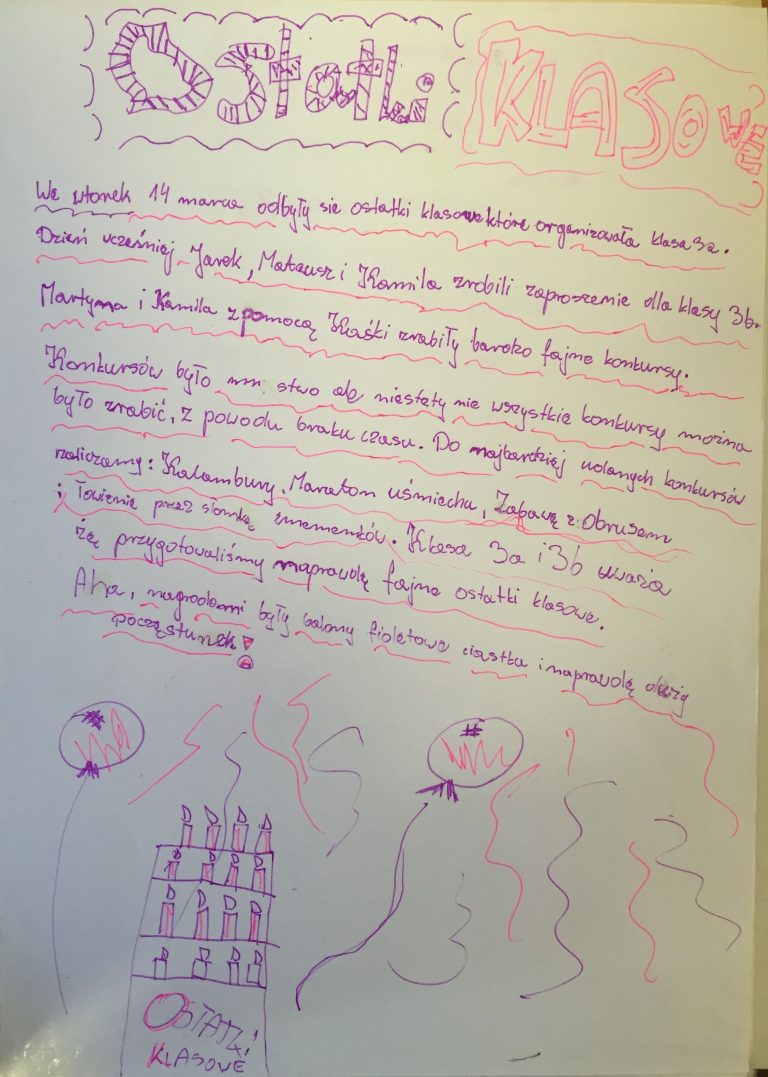 Ostatki KLASOWE
We wtorek 14 marca odbyły sie ostatki klasowe które organizowała klasa 3a.
Dzień wcześniej Jarek, Mateusz i Kamila zrobili zaproszenie dla klasy 3b.
Martyna i Kamila z pomocą Kaśki zrabiły bardzo fajne konkursy.
Konkursów było mn stwo ale niestety nie wszystkie konkursy można
było zrabić, z powodu braku czasu. Do najbardziej udanych konkursów
zaliczamy: Kalambury, Maraton uśmiechu, Zabawę z Obrusem
i Łowienie przez słomkę ememenków. Klasa 3a i 3b uważa
żę przygotowaliśmy naprawdę fajne ostatki klasowe.
Aha, nagrodami były balony fioletowe ciastka i naprawdę duży
poczęstunek!
OSTATKI
KLASOWE